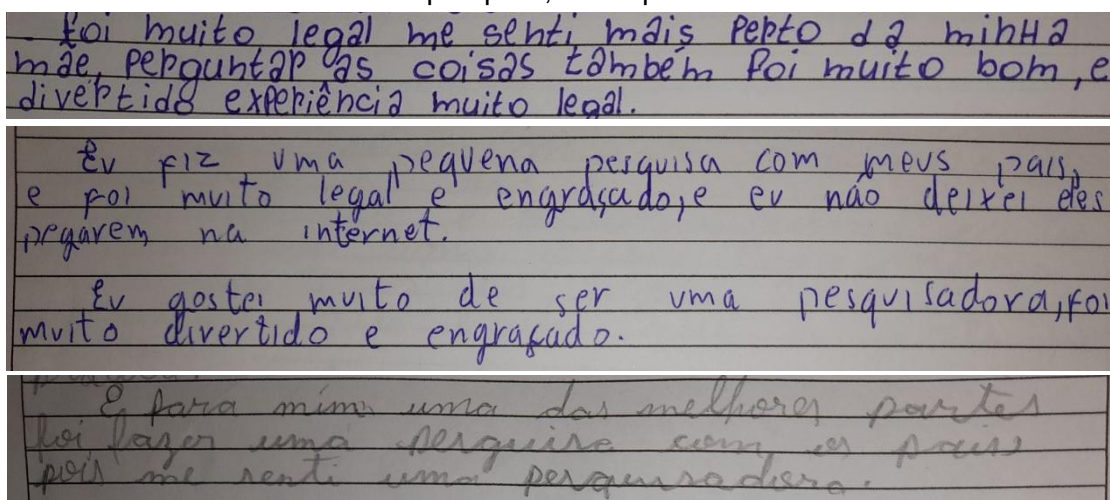 foi muito legal me senti mais perto da minha
mãe, perguntar as coisas também foi muito bom, e
divertido experiência muito legal.
Eu fiz uma pequena pesquisa com meus pais,
e foi muito legal e engraçado, e eu não deixei eles
pegarem na internet.
Eu gostei muito de ser uma pesquisadora, foi
muito divertido e engraçado.
E para mim uma das melhores partes
foi fazer uma pesquisa com os pais
pois me senti uma pesquisadora.